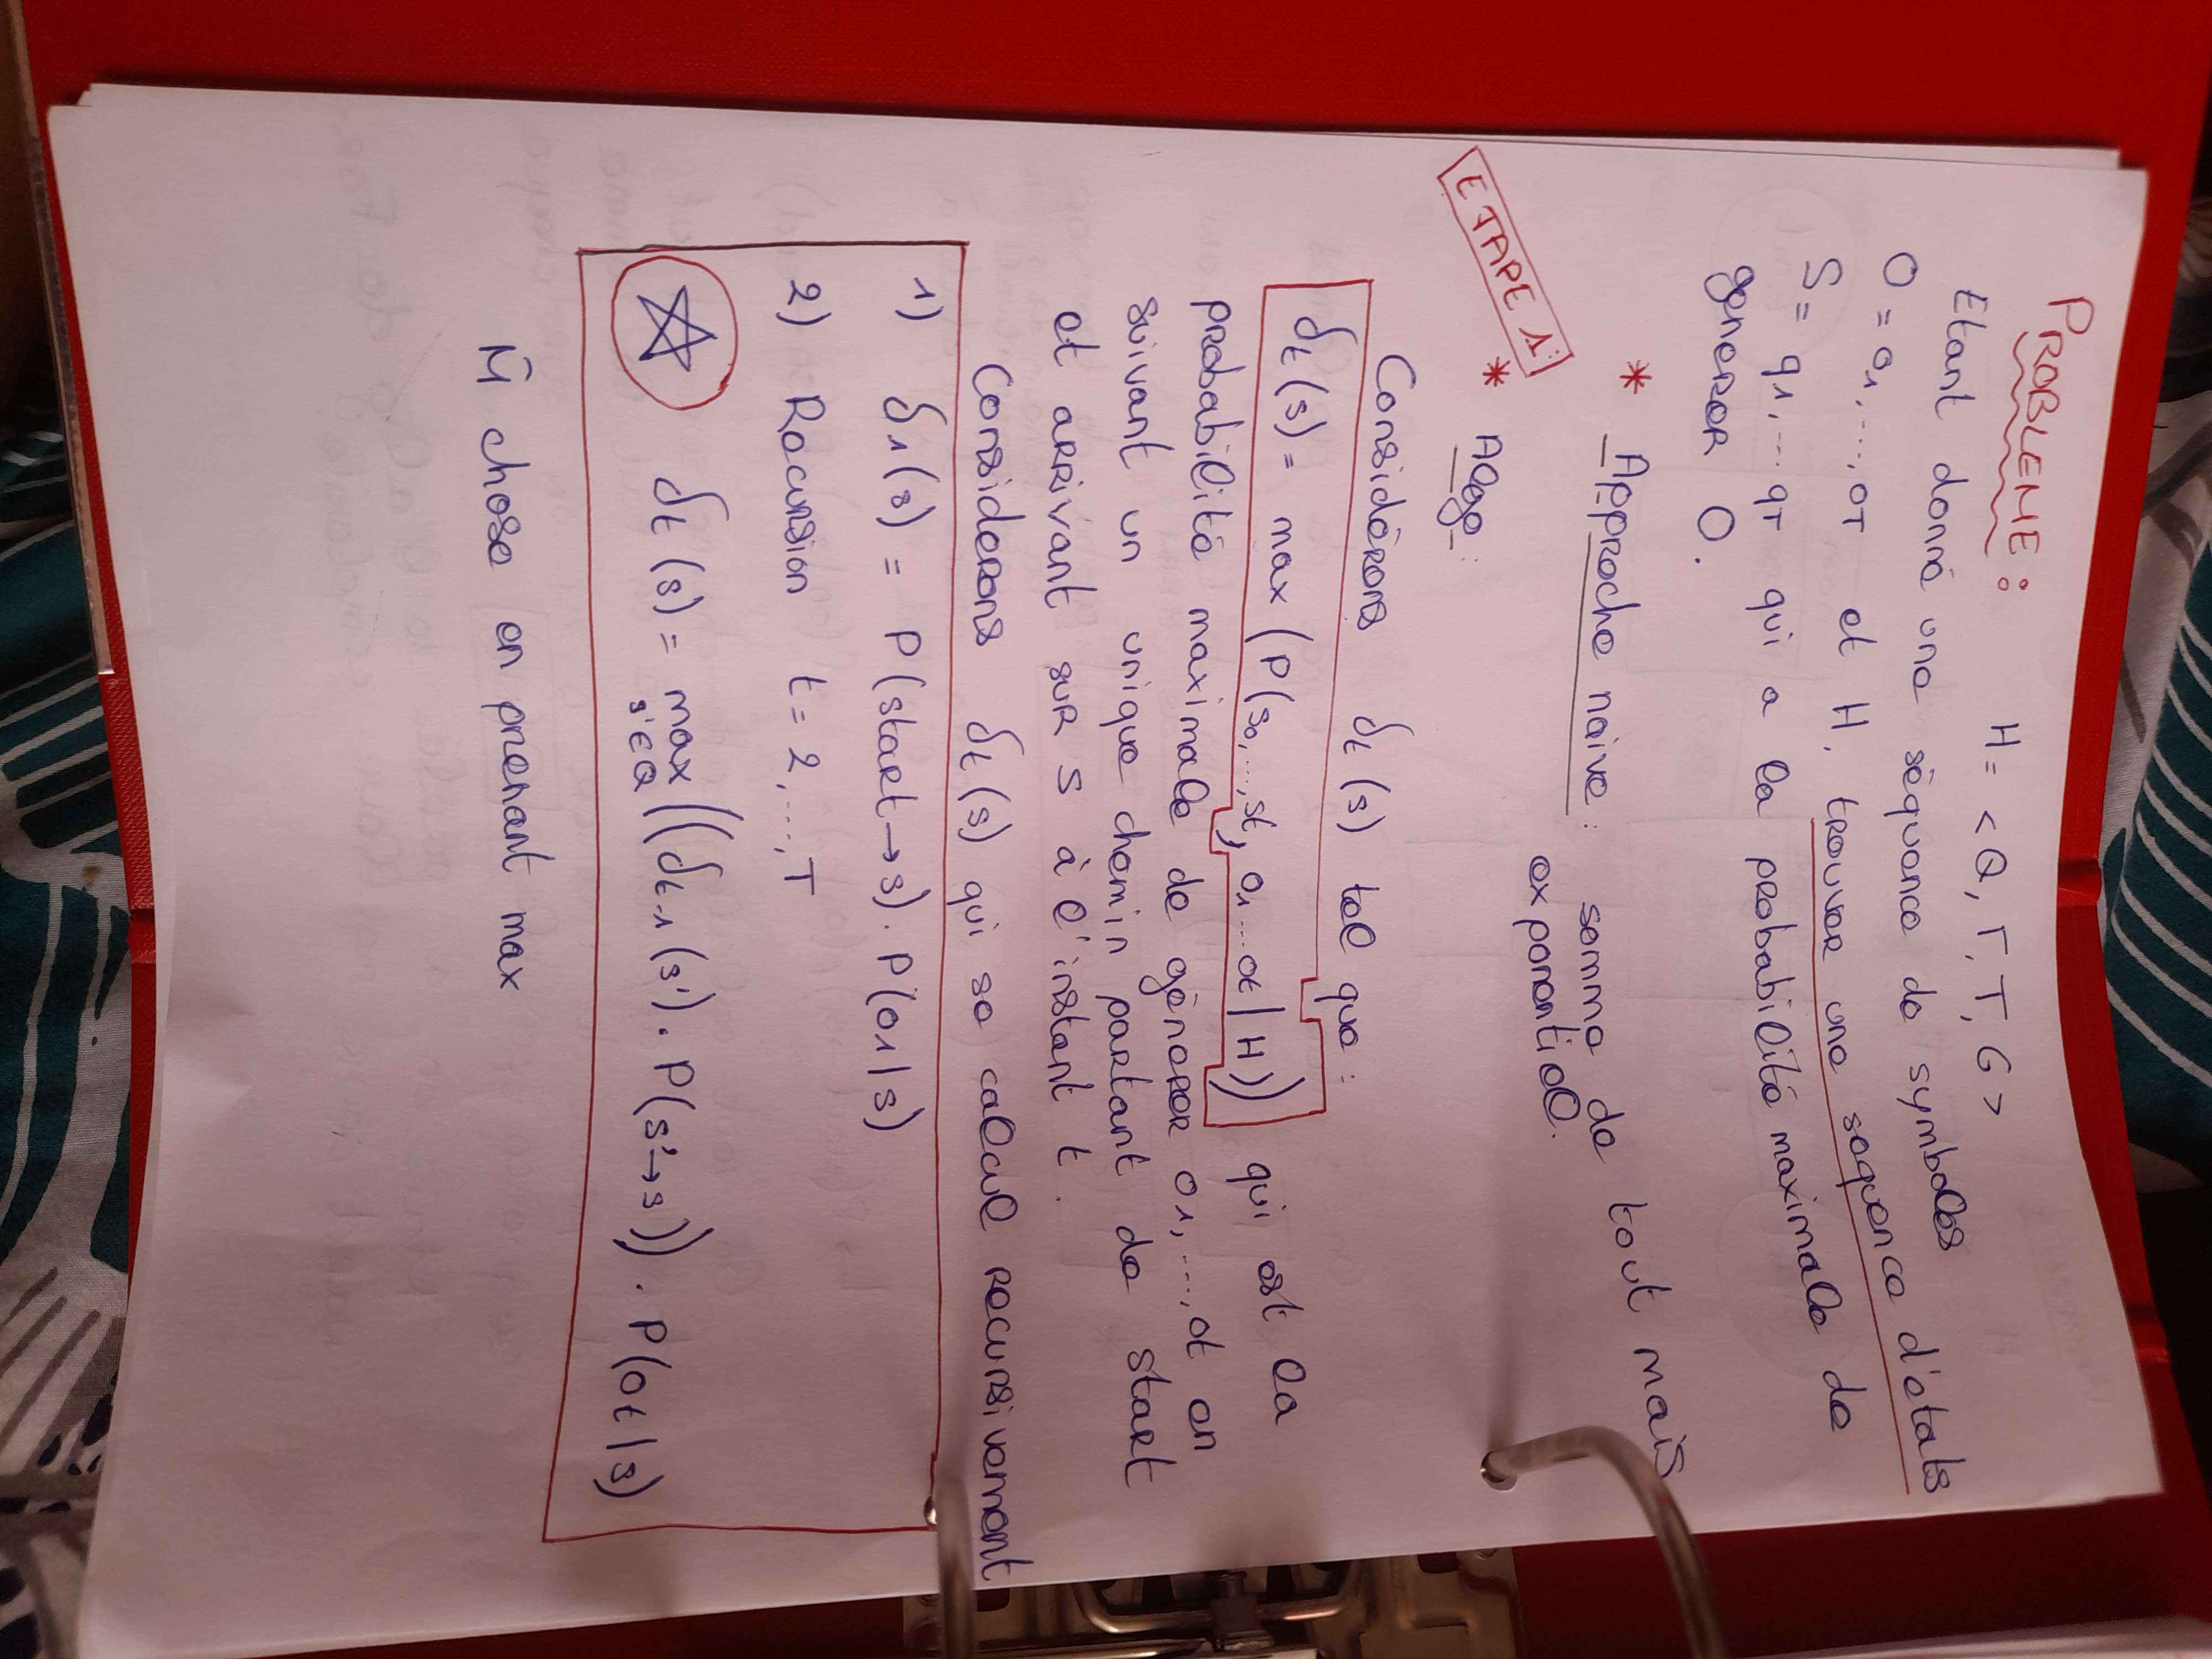 PROBLEME :
H = < Q, Γ, T, G >
Etant donné une séquence de symboles
O = o1, ..., oT et H, trouver une sequence d'états
S = q1, ... qT qui a la probabilité maximale de
generer O.
* Approche naive : somme de tout mais
exponentiel.
ETAPE 1 :
* Algo :
Considérons δt (s) tel que :
δt (s) = max (P(s0, ..., st, o1 ... ot | H)) qui est la
probabilité maximale de génerer o1, ..., ot en
suivant un unique chemin partant de start
et arrivant sur s à l'instant t.
Considerons δt (s) qui se calcul recursivement
1) δ1(s) = P(start→s) . P(o1|s)
2) Recursion t = 2, ..., T
δt (s) = max s'∈Q ((δt-1 (s') . P(s'→s)) . P(ot|s)
M̃ chose en prenant max